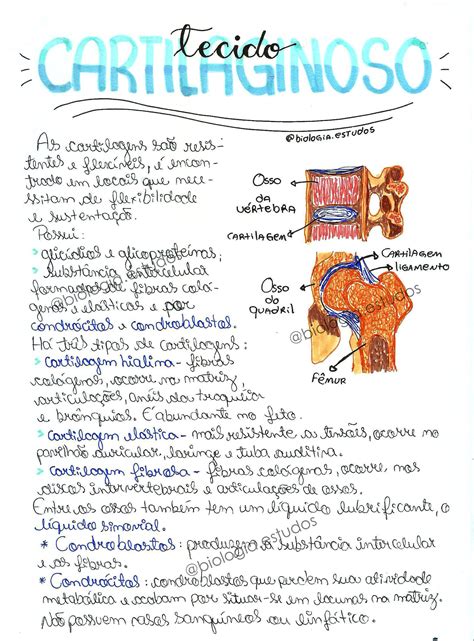 tecido
CARTILAGINOSO
@biologia.estudos
As cartilagens são resis-
tentes e flexíveis, é encon-
trado em locais que nece-
ssitam de flexibilidade
e sustentação.
Possui:
> glicídios e glicoproteínas;
> substância intercelular
formada de fibras colá-
genas e elásticas e por
condrócitos e condroblastos.
Osso
da
vértebra
cartilagem
Cartilagem
ligamento
Osso
do
quadril
Fêmur
@biologia.estudos
@biologia.estudos
Há três tipos de cartilagens:
> cartilagem hialina - fibras
colágenas, ocorre na matriz,
articulações, anéis da traqueia
e brônquios. É abundante no feto.
> cartilagem elástica - mais resistente a tensões, ocorre no
pavilhão auricular, laringe e tuba auditiva.
> cartilagem fibrosa - fibras colágenas, ocorre nos
discos intervertebrais e articulações de ossos.
Entre os ossos também tem um líquido lubrificante, o
líquido sinovial.
* Condroblastos: produzem a substância intercelular
e as fibras.
@biologia.estudos
* Condrócitos: condroblastos que perdem sua atividade
metabólica e acabam por situar-se em lacunas na matriz.
Não possuem vasos sanguíneos ou linfático.